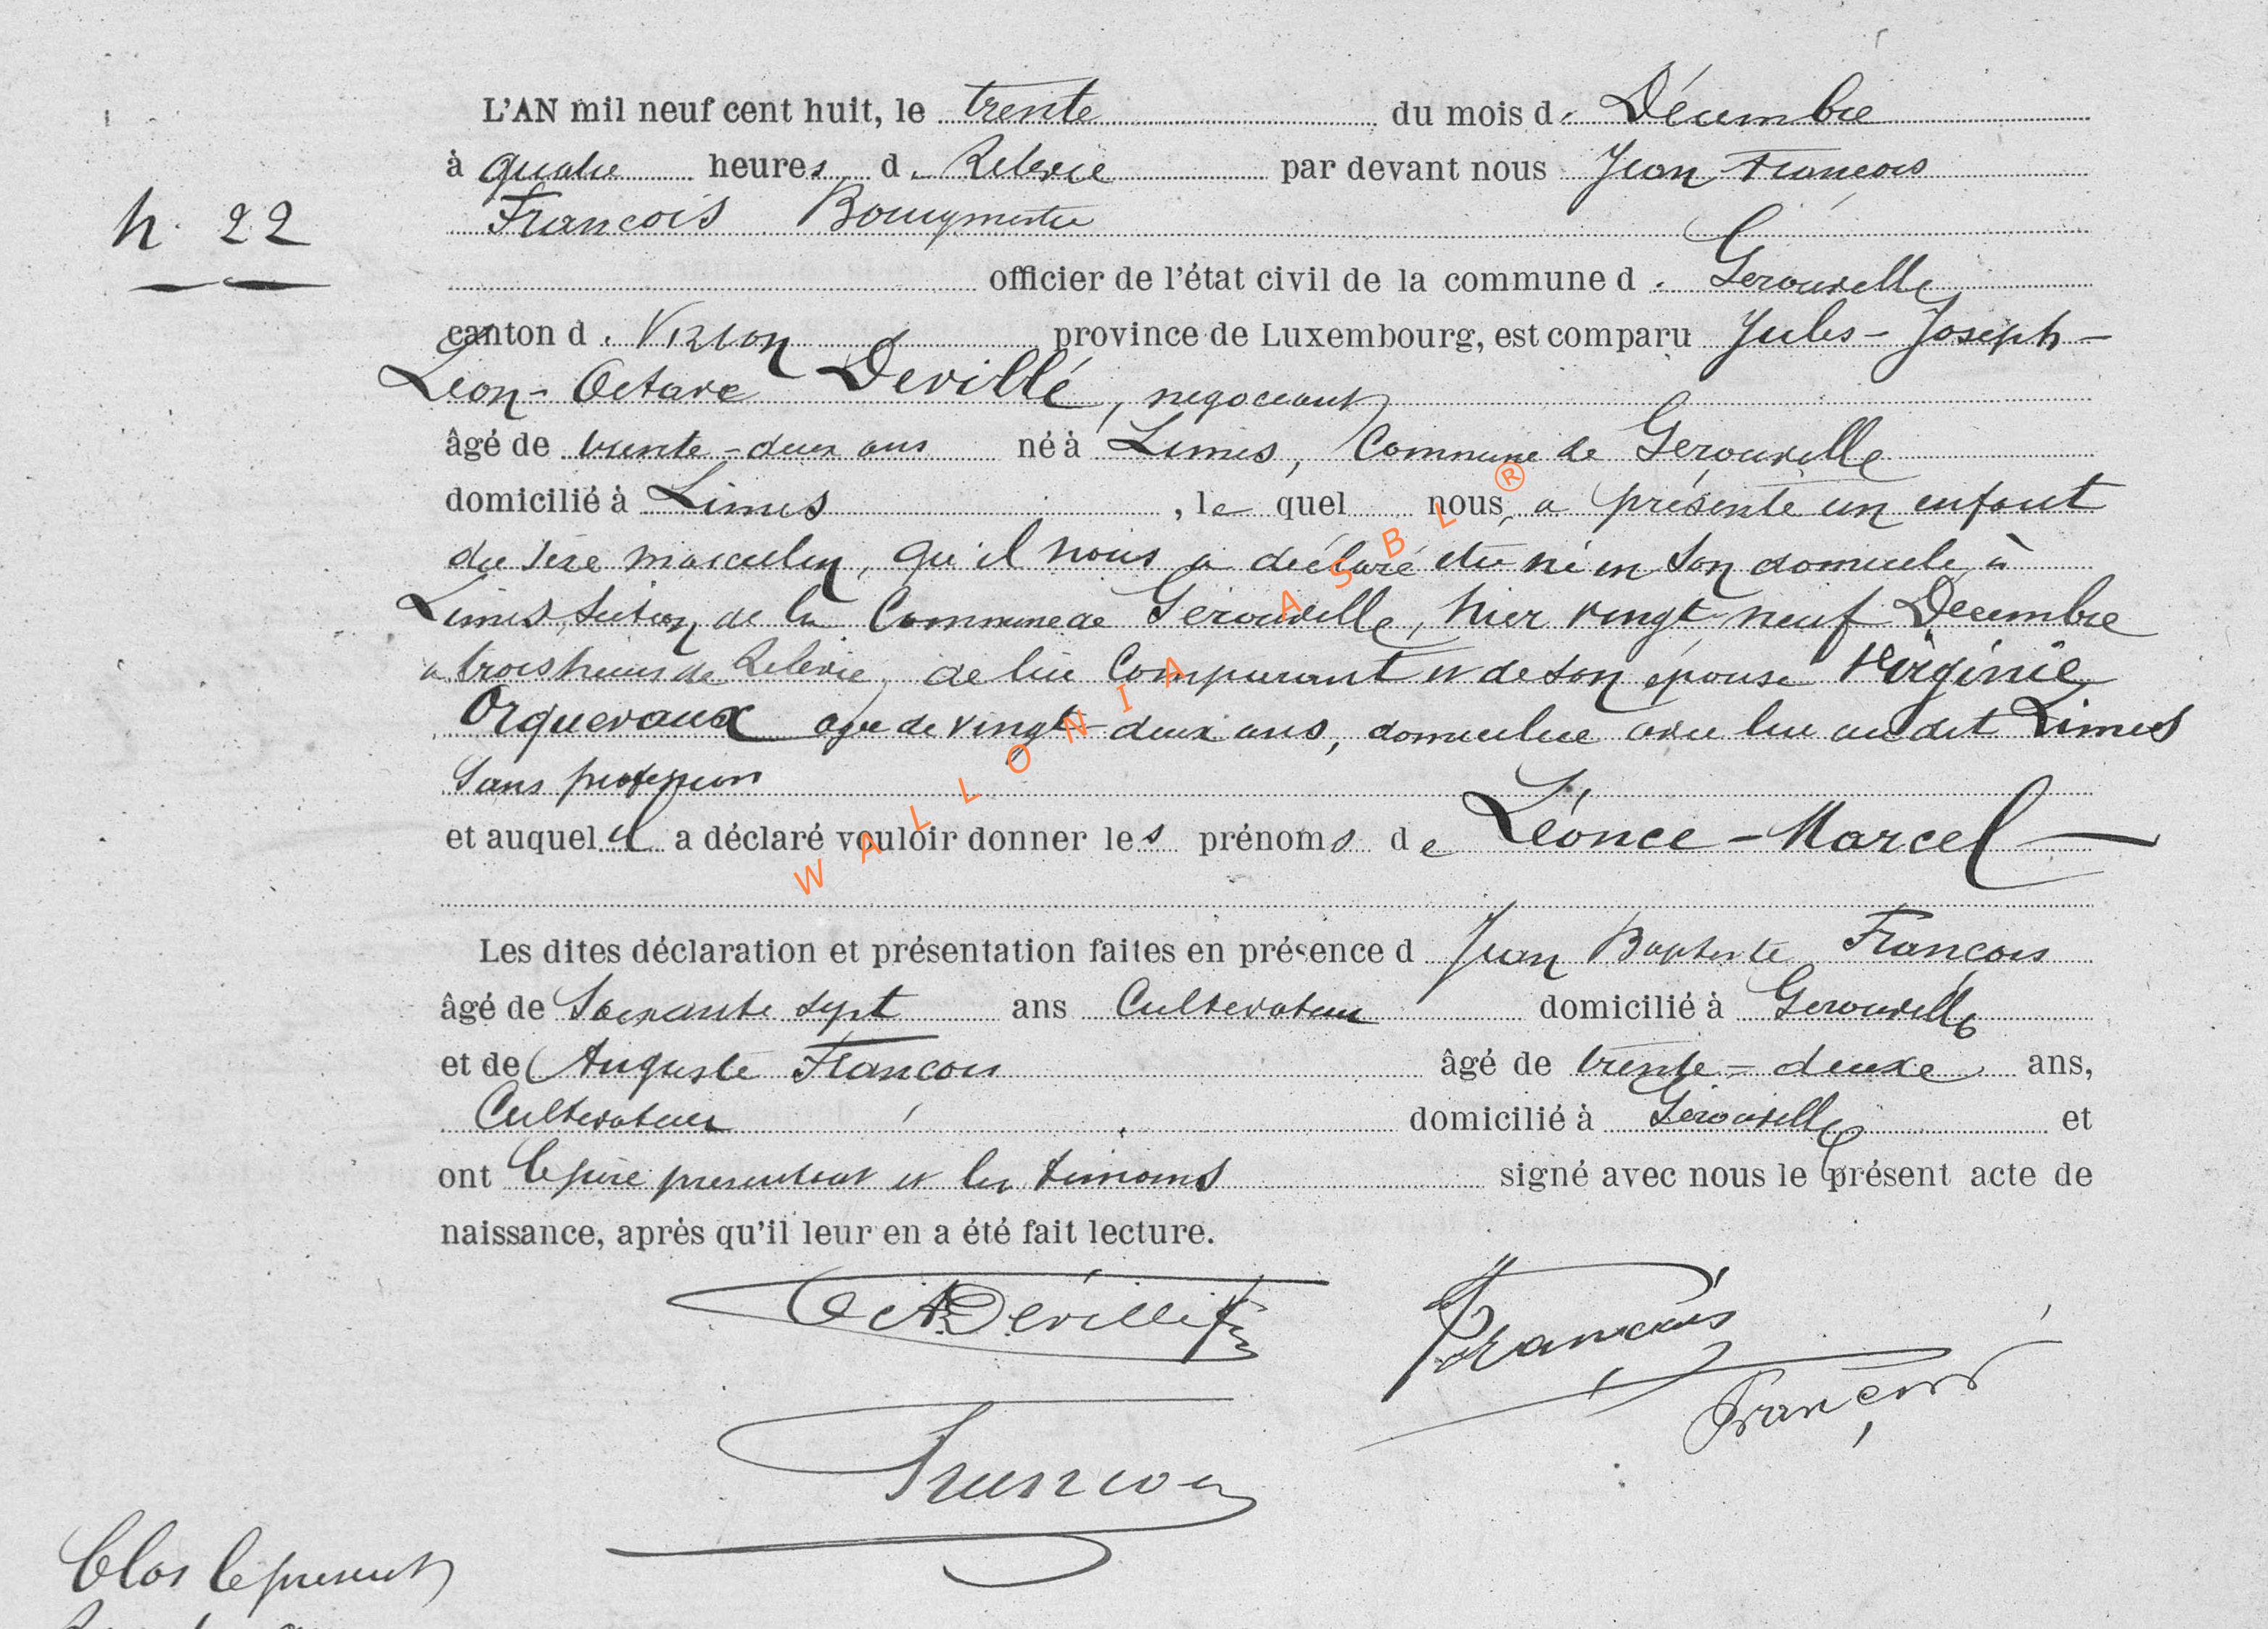 L'AN mil neuf cent huit, le trente du mois de Décembre
à quatre heures de Relevée par devant nous Jean François
n. 22
François Bourgmestre
officier de l'état civil de la commune de Gerouville
canton de Virton province de Luxembourg, est comparu Jules-Joseph-
Léon-Octave Devillé, négociant
âgé de trente-deux ans né à Limes, Commune de Gerouville
domicilié à Limes, lequel nous a présenté un enfant
du sexe masculin, qu'il nous a déclaré être né en son domicile à
Limes, section de la Commune de Gerouville, hier vingt neuf Decembre
à trois heures de Relevée, de lui Comparant et de son épouse Virginie
Orquevaux agée de vingt-deux ans, domiciliée avec lui au dit Limes
Sans profession
et auquel il a déclaré vouloir donner les prénoms de Léonce-Marcel
Les dites déclaration et présentation faites en présence d Jean Baptiste François
âgé de Soixante sept ans Cultivateur domicilié à Gerouville
et de Auguste François âgé de trente-deuxe ans,
Cultivateur domicilié à Gerouville et
ont le père présentant et les témoins signé avec nous le présent acte de
naissance, après qu'il leur en a été fait lecture.
Oct Devillé François
François
François
Clos le présent
WALLONIA ASBL ®